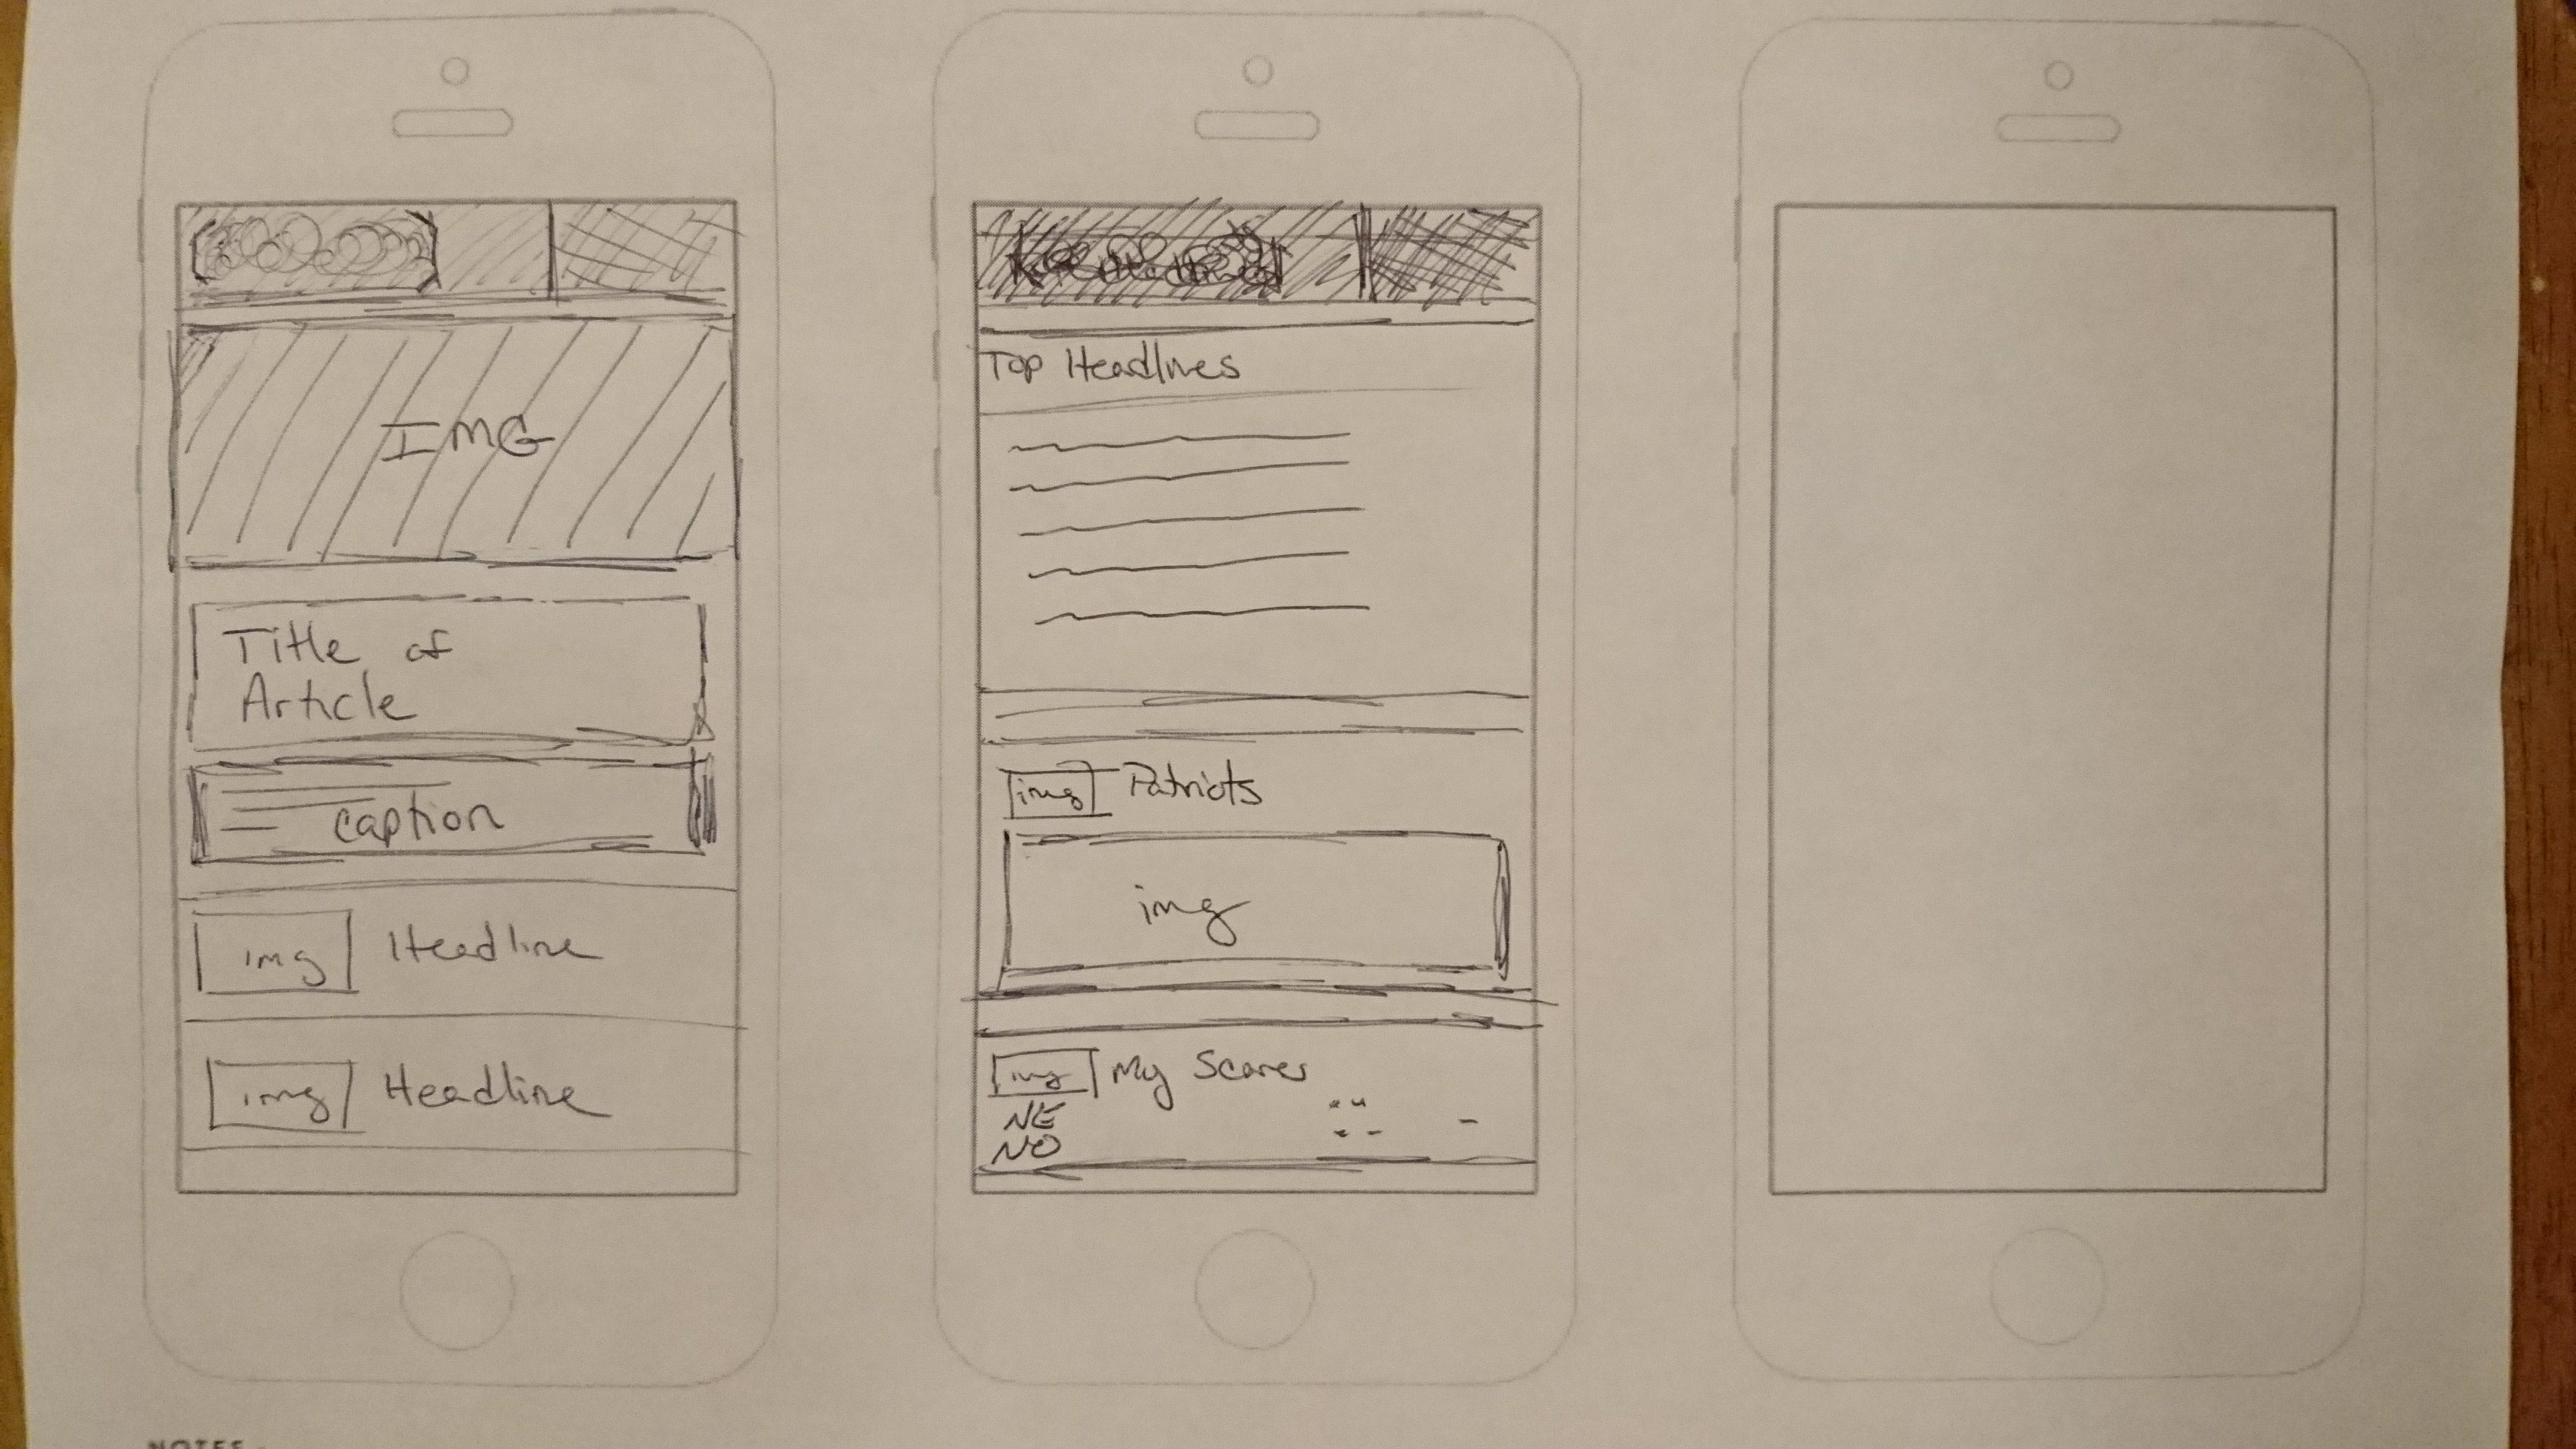 IMG
Title of
Article
caption
img Headline
img Headline
Top Headlines
img Patriots
img
img My Scores
NE
NO
NOTES